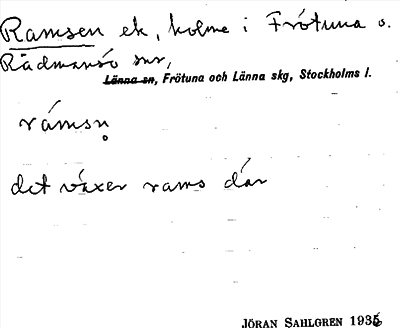 Ramsen ek, holme i Frötuna o.
Rådmansö snr,
Länna sn, Frötuna och Länna skg, Stockholms l.
rámsn̥
det växer rams där
JÖRAN SAHLGREN 1936